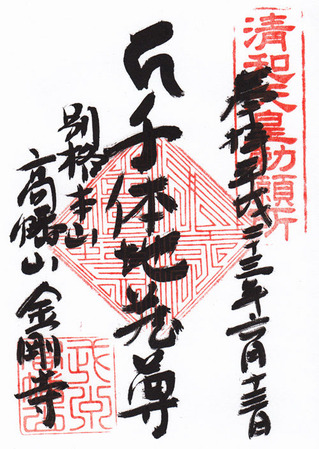 清和天皇勅願所
奉拝 平成二十三年六月十三日
千体地蔵尊
別格本山
高幡山 金剛寺